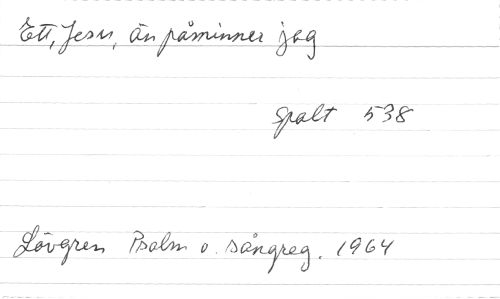 Ett, Jesu, än påminner jag
spalt 538
Lövgren Psalm o. sångreg. 1964